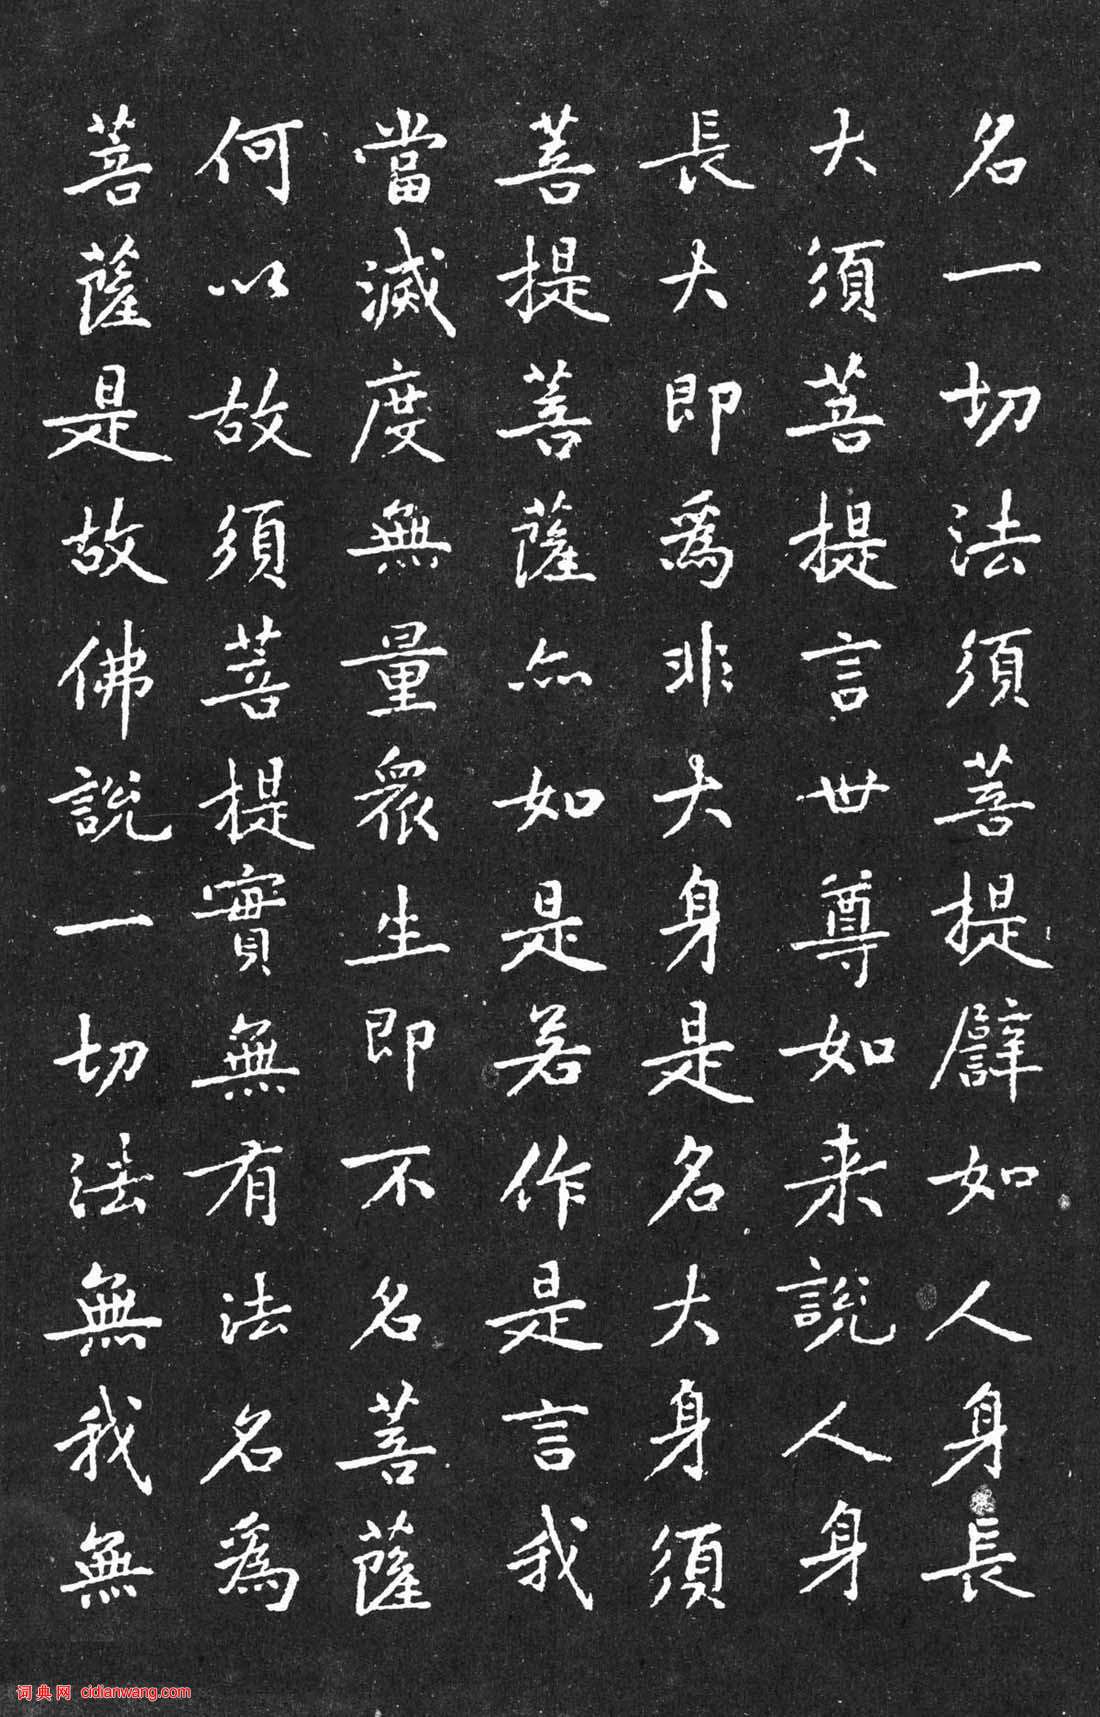 名一切法須菩提譬如人身長
大須菩提言世尊如来說人身
長大即爲非大身是名大身須
菩提菩薩亦如是若作是言我
當滅度無量衆生即不名菩薩
何以故須菩提實無有法名爲
菩薩是故佛說一切法無我無
词典网 cidianwang.com